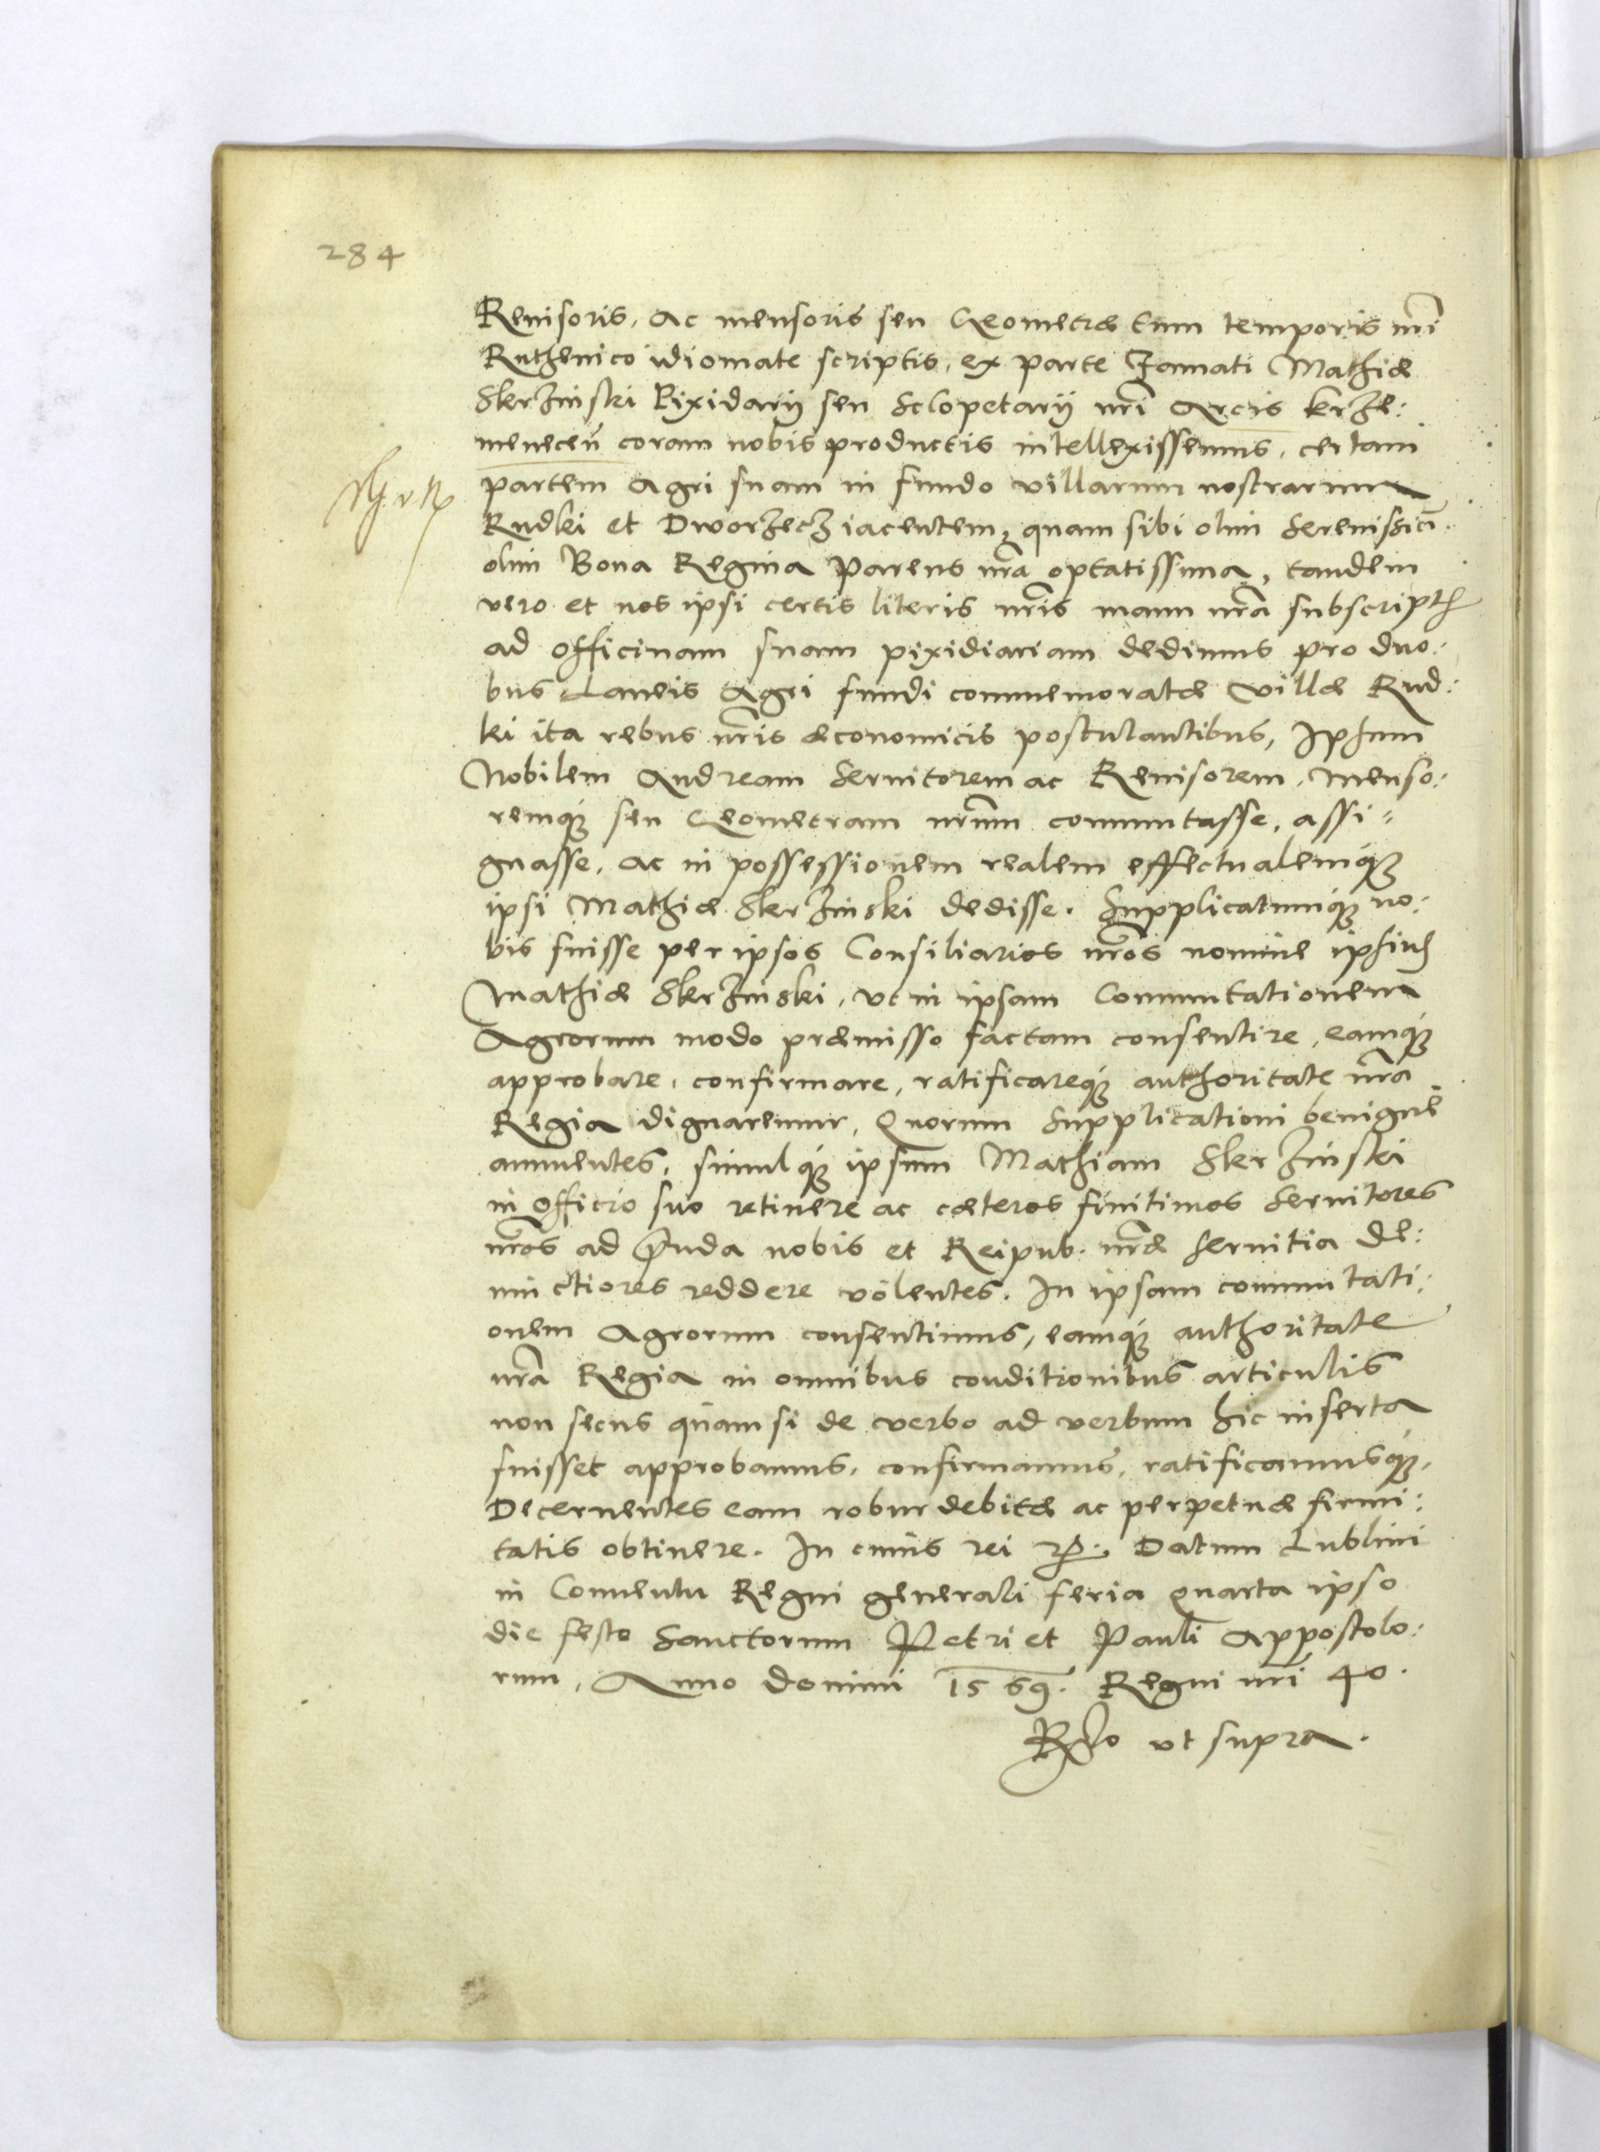 284
Reuisoris, ac mensoris seu Geometræ tum temporis nr̃i
Ruthenico idiomate scriptis, ex parte Famati Mathiæ
Skrzinski Pixidarij seu Sclopetarij nr̃i Arcis Krze:
meneceñ coram nobis productis intellexissemus, certam
partem Agri suam in fundo villarum nostrarum
Rudki et Dworzecz iacentem, quam sibi olim Serenissim̃
olim Bona Regina Parens nr̃a optatissima, tandem
vero et nos ipsi certis literis nr̃is manu nr̃a subscript
ad officinam suam pixidiariam dedimus pro duo:
bus Laneis Agri fundi commemoratæ villæ Rud:
ki ita rebus nr̃is æconomicis postulantibus, Ipsum
Nobilem Andream Seruitorem ac Reuisorem, Menso:
remq; seu Geometram nr̃um commutasse, assi=
gnasse, ac in possessionem realem effectualemq;
ipsi Mathiæ Skrzinski dedisse. Supplicatumq; no:
bis fuisse per ipsos Consiliarios nr̃os nomine ipsius
Mathiæ Skrzinski, vt in ipsam Commutationem
Agrorum modo præmisso factam consentire, eamq;
approbare, confirmare, ratificareq; authoritate nr̃a
Regia dignaremur, Quorum Supplicationi benigne
annuentes, simulq; ipsum Mathiam Skrzinski
in officio suo retinere ac cæteros finitimos Seruitores
nr̃os ad p̃nda nobis et Reipub. nr̃æ Seruitia de:
uinctiores reddere volentes. In ipsam commutati:
onem Agrorum consentimus, eamq; authoritate
nr̃a Regia in omnibus conditionibus articulis
non secus quam si de verbo ad verbum hic inserta
fuisset approbamus, confirmamus, ratificamusq;,
Decernentes eam robur debitæ ac perpetuæ firmi:
tatis obtinere. In cuius rei etc. Datum Lublini
in Conuentu Regni generali feria quarta ipso
die festo Sanctorum Petri et Pauli Appostolo:
rum, Anno Domini 1569. Regni nr̃i 40.
Rlo vt supra.